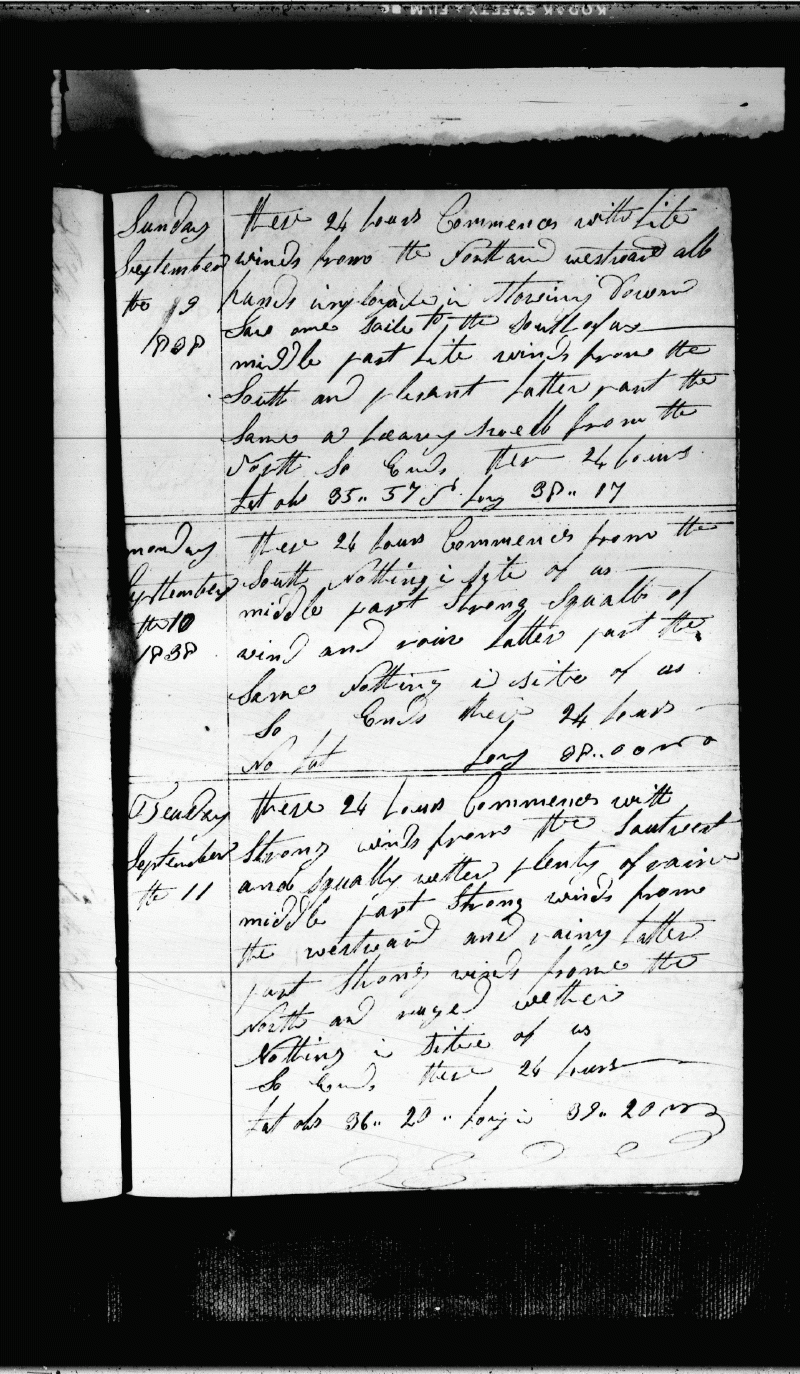 KODAK SAFETY FILM
Sunday
September
the 9
1838
these 24 hours Commences with Lite
winds from the North and westward all
hands imployed in Stowing Down
Saw one sail to the South of us
middle part Lite winds from the
South and plesant Latter part the
Same a heavy swell from the
North So Ends these 24 hours
Lat obs 35.. 57 Long 38.. 17
monday
Septtember
the 10
1838
these 24 hours Commences from the
South Notthing i site of us
middle part Strong Squalls of
wind and rain Latter part the
Same Notthing i site of us
So Ends these 24 hours
No Lat Long 38..00
Tseuday
September
the 11
these 24 hours Commences with
Strong winds from the Soutwest
and Squally wether plenty of rain
middle part Strong winds from
the westward and rainy Latter
part Strong winds from the
North and ruged wether
Notthing i sitee of us
So Ends these 24 hours
Lat obs 36.. 20 .. Long in 39.. 20